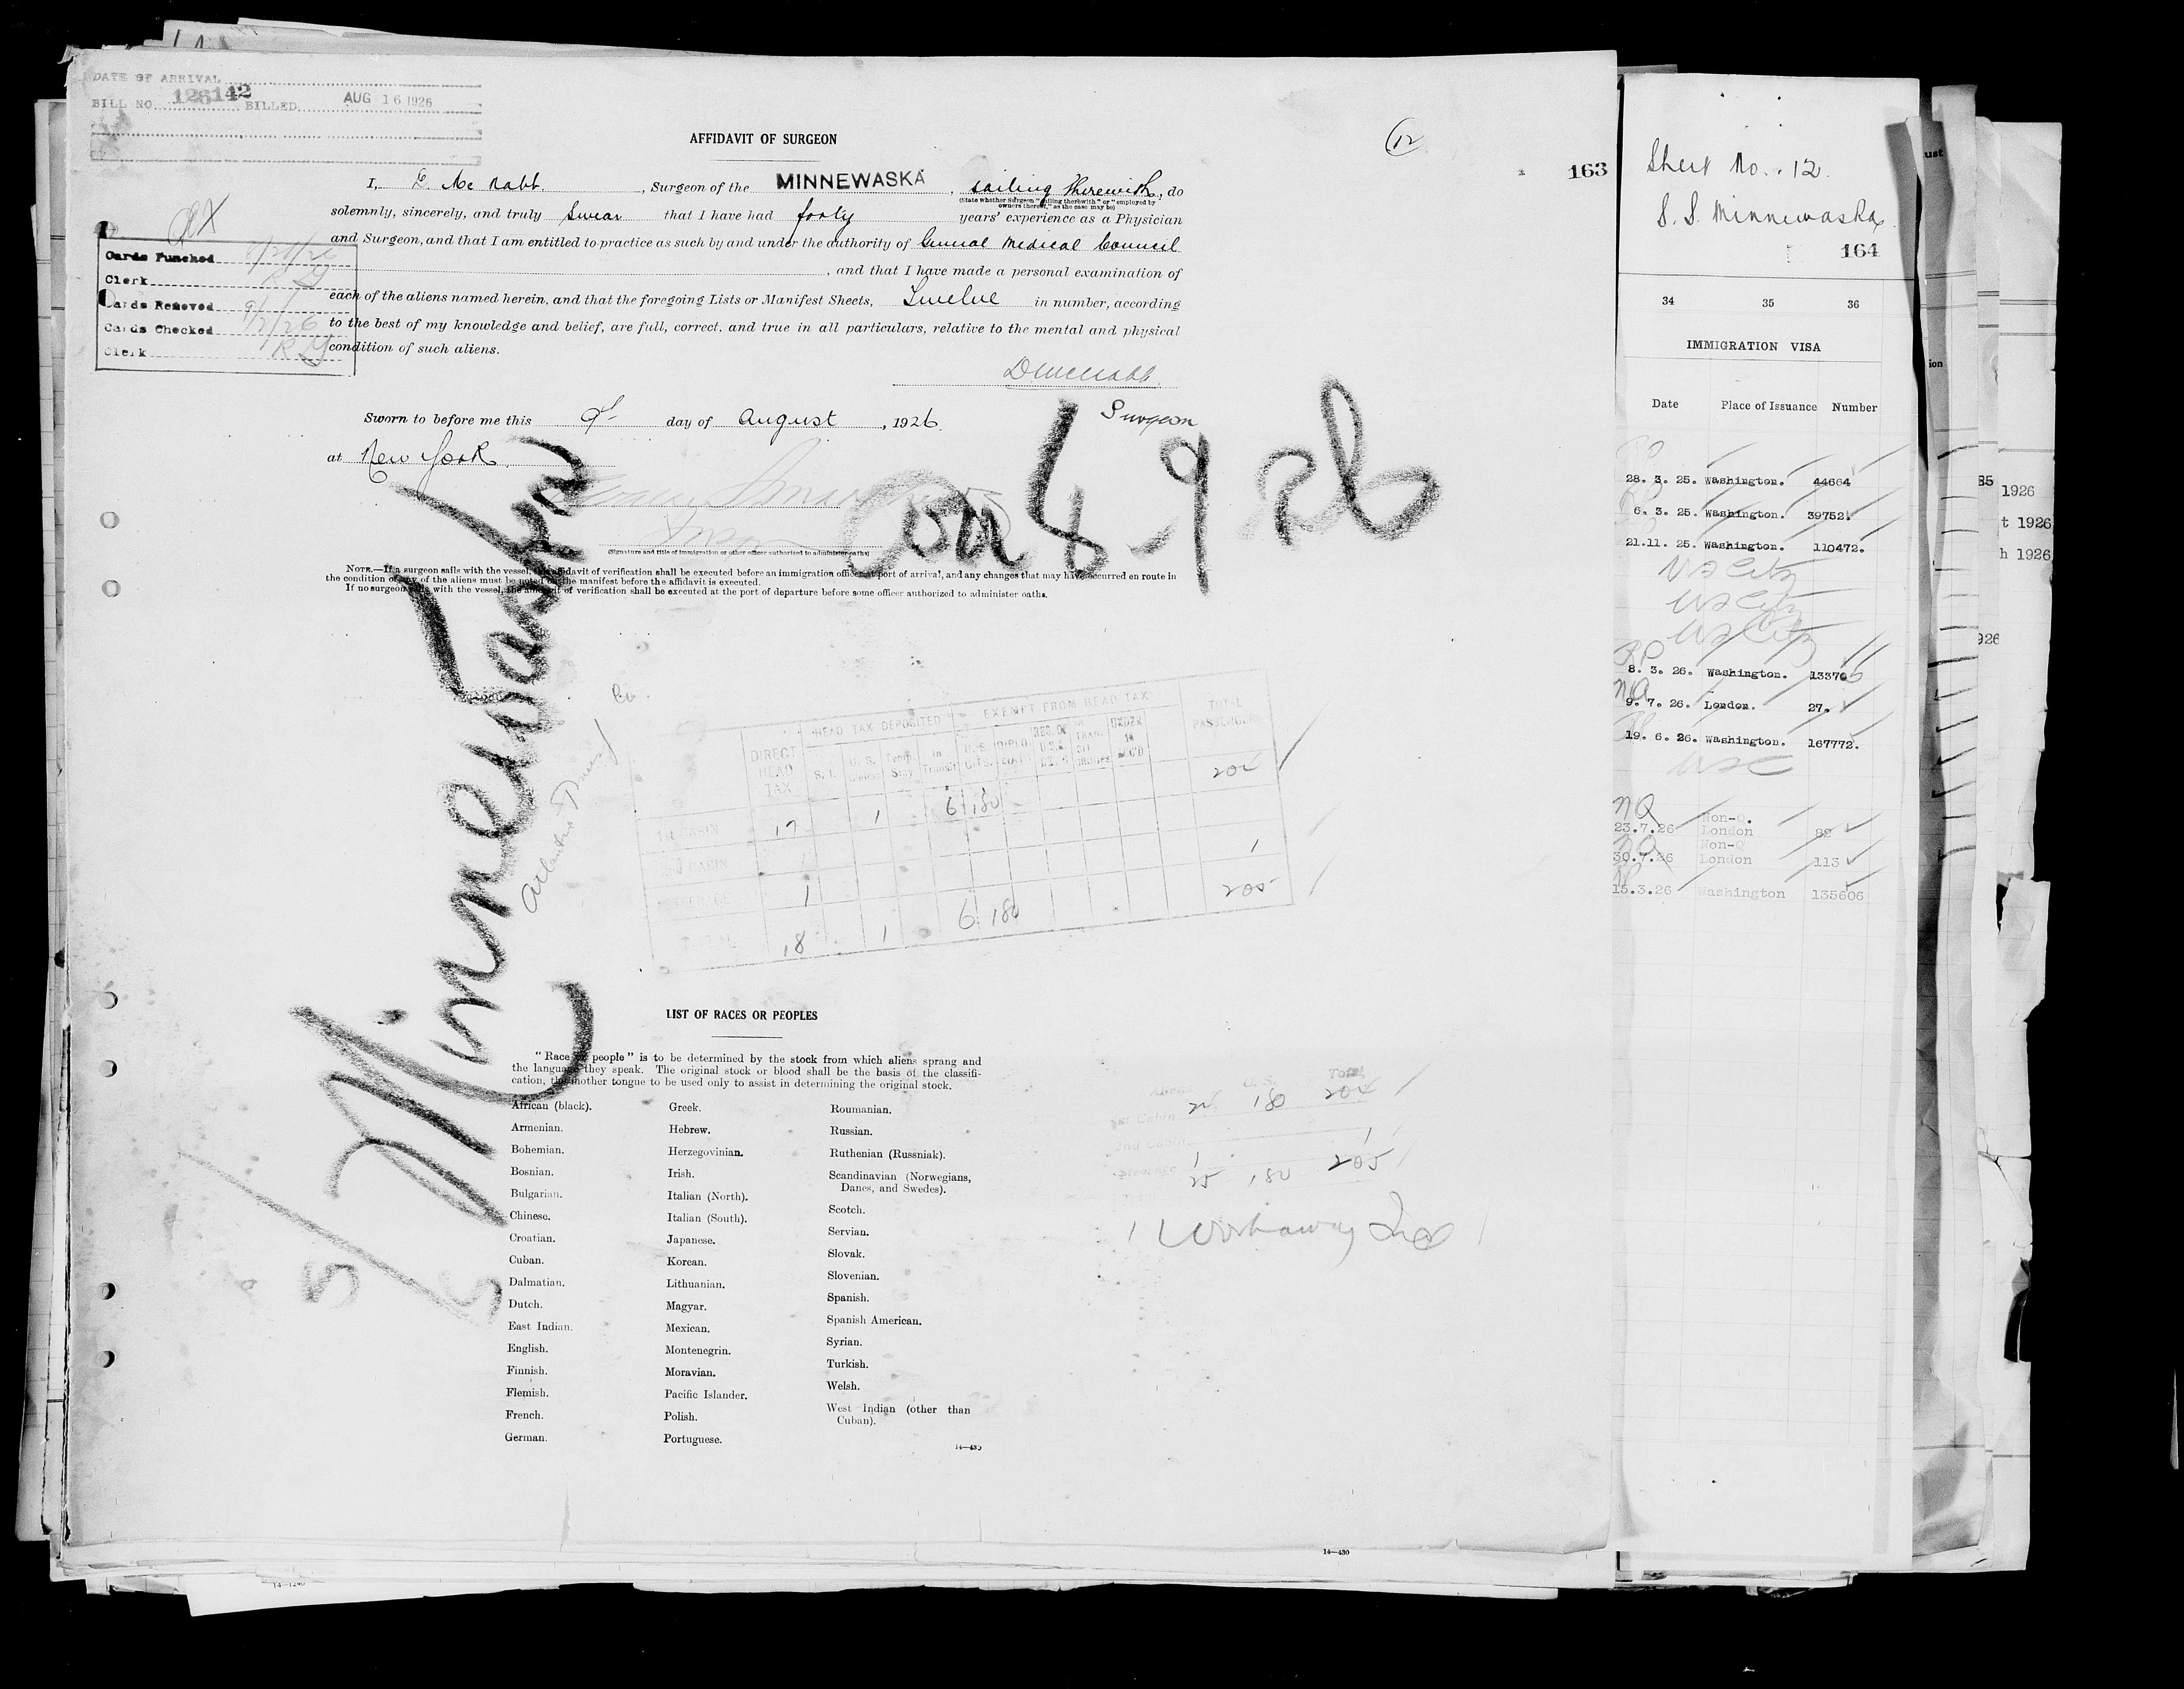 DATE OF ARRIVAL
BILL NO. 126142 BILLED AUG 16 1926
AFFIDAVIT OF SURGEON
12
163
I, D. Mc Nabb, Surgeon of the MINNEWASKA, sailing therewith, do
(State whether Surgeon "sailing therewith" or "employed by
owners thereof," as the case may be)
solemnly, sincerely, and truly swear that I have had forty years' experience as a Physician
and Surgeon, and that I am entitled to practice as such by and under the authority of General Medical Council
, and that I have made a personal examination of
each of the aliens named herein, and that the foregoing Lists or Manifest Sheets, Twelve in number, according
to the best of my knowledge and belief, are full, correct, and true in all particulars, relative to the mental and physical
condition of such aliens.
Cards Punched
Clerk R G
Cards Removed
Cards Checked 9/7/26
Clerk R G
D McNabb.
Surgeon
Sworn to before me this 9th day of August, 1926.
at New York.
(Signature and title of immigration or other officer authorized to administer oaths)
NOTE.—If a surgeon sails with the vessel, the affidavit of verification shall be executed before an immigration officer at port of arrival, and any changes that may have occurred en route in
the condition of any of the aliens must be noted on the manifest before the affidavit is executed.
If no surgeon sails with the vessel, the affidavit of verification shall be executed at the port of departure before some officer authorized to administer oaths.
Minnewaska
8-9 26
DIRECT HEAD TAX
HEAD TAX DEPOSITED
EXEMPT FROM HEAD TAX
TOTAL PASSENGERS
S. I.
Temp. Stay
In Transit
U. S. CITS.
1st CABIN 17 1 6 180 204
2nd CABIN
STEERAGE 1 1
TOTAL 18 1 6 180 205
LIST OF RACES OR PEOPLES
"Race or people" is to be determined by the stock from which aliens sprang and
the language they speak. The original stock or blood shall be the basis of the classifi-
cation, the mother tongue to be used only to assist in determining the original stock.
African (black).
Armenian.
Bohemian.
Bosnian.
Bulgarian.
Chinese.
Croatian.
Cuban.
Dalmatian.
Dutch.
East Indian.
English.
Finnish.
Flemish.
French.
German.
Greek.
Hebrew.
Herzegovinian.
Irish.
Italian (North).
Italian (South).
Japanese.
Korean.
Lithuanian.
Magyar.
Mexican.
Montenegrin.
Moravian.
Pacific Islander.
Polish.
Portuguese.
Roumanian.
Russian.
Ruthenian (Russniak).
Scandinavian (Norwegians,
Danes, and Swedes).
Scotch.
Servian.
Slovak.
Slovenian.
Spanish.
Spanish American.
Syrian.
Turkish.
Welsh.
West Indian (other than
Cuban).
14—430
Aliens U. S. Total
1st Cabin 24 180 204
2nd Cabin
Steerage 1 1
25 180 205
1 Workaway
14—430
14—1240
Sheet No. 12.
S. S. Minnewaska
164
34 35 36
IMMIGRATION VISA
Date Place of Issuance Number
28. 3. 25. Washington. 44664
6. 3. 25. Washington. 39752.
21.11. 25. Washington. 110472.
US City
US City
US City
RP
8. 3. 26. Washington. 133706
NQ
9. 7. 26. London. 27.
19. 6. 26. Washington. 167772.
USC
NQ Non-Q.
23.7.26 London 82
NQ Non-Q
30.7.26 London 113
RP
15.3.26 Washington 135606
1926
t 1926
h 1926
926
ust
ion